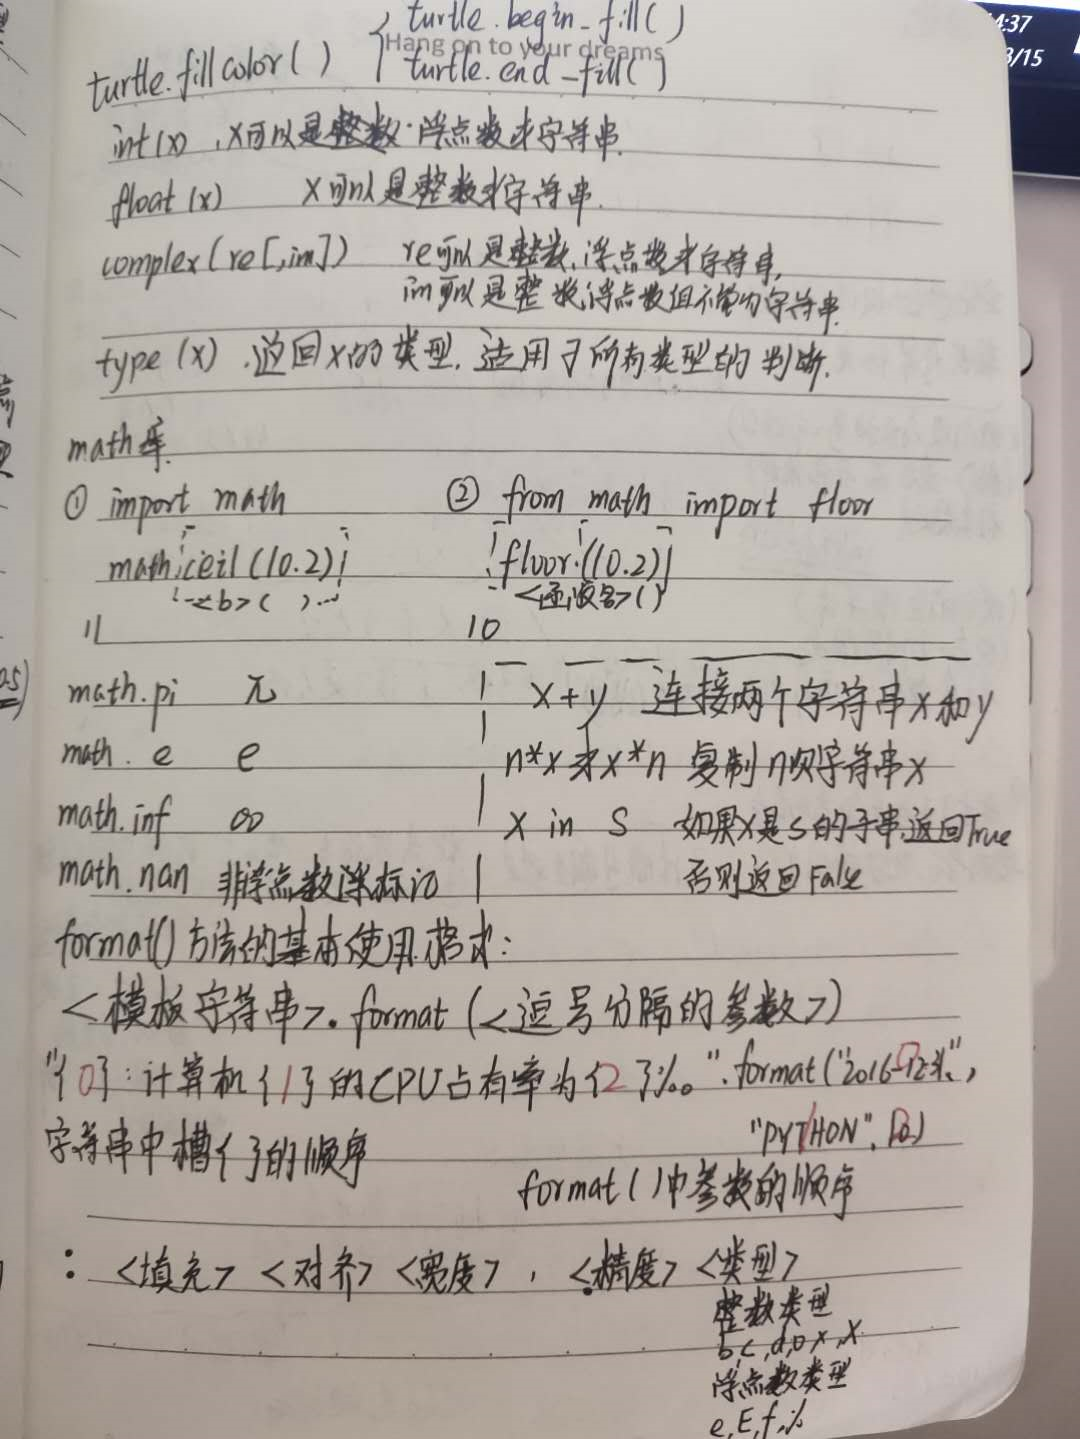 turtle.begin_fill()
Hang on to your dreams
turtle.fillcolor() turtle.end_fill()
int(x),x可以是整数.浮点数或字符串.
float(x) x可以是整数或字符串.
complex(re[,im]) re可以是整数,浮点数或字符串,
im可以是整数,浮点数但不能为字符串.
type(x),返回x的类型,适用于所有类型的判断.
math库.
① import math ② from math import floor
math.ceil(10.2) floor(10.2)
<b>( ) <函数名>()
11 10
math.pi π x+y 连接两个字符串x和y
math.e e n*x或x*n 复制n次字符串x
math.inf ∞ x in s 如果x是s的子串,返回True
math.nan 非浮点数标记 否则返回False
format()方法的基本使用格式:
<模板字符串>.format(<逗号分隔的参数>)
"{0}:计算机{1}的CPU占有率为{2}%。".format("2016-12-31",
"PYTHON",10)
字符串中槽{}的顺序
format()中参数的顺序
: <填充> <对齐> <宽度> , <.精度> <类型>
整数类型
b,c,d,o,x,X
浮点数类型
e,E,f,%
4:37
3/15